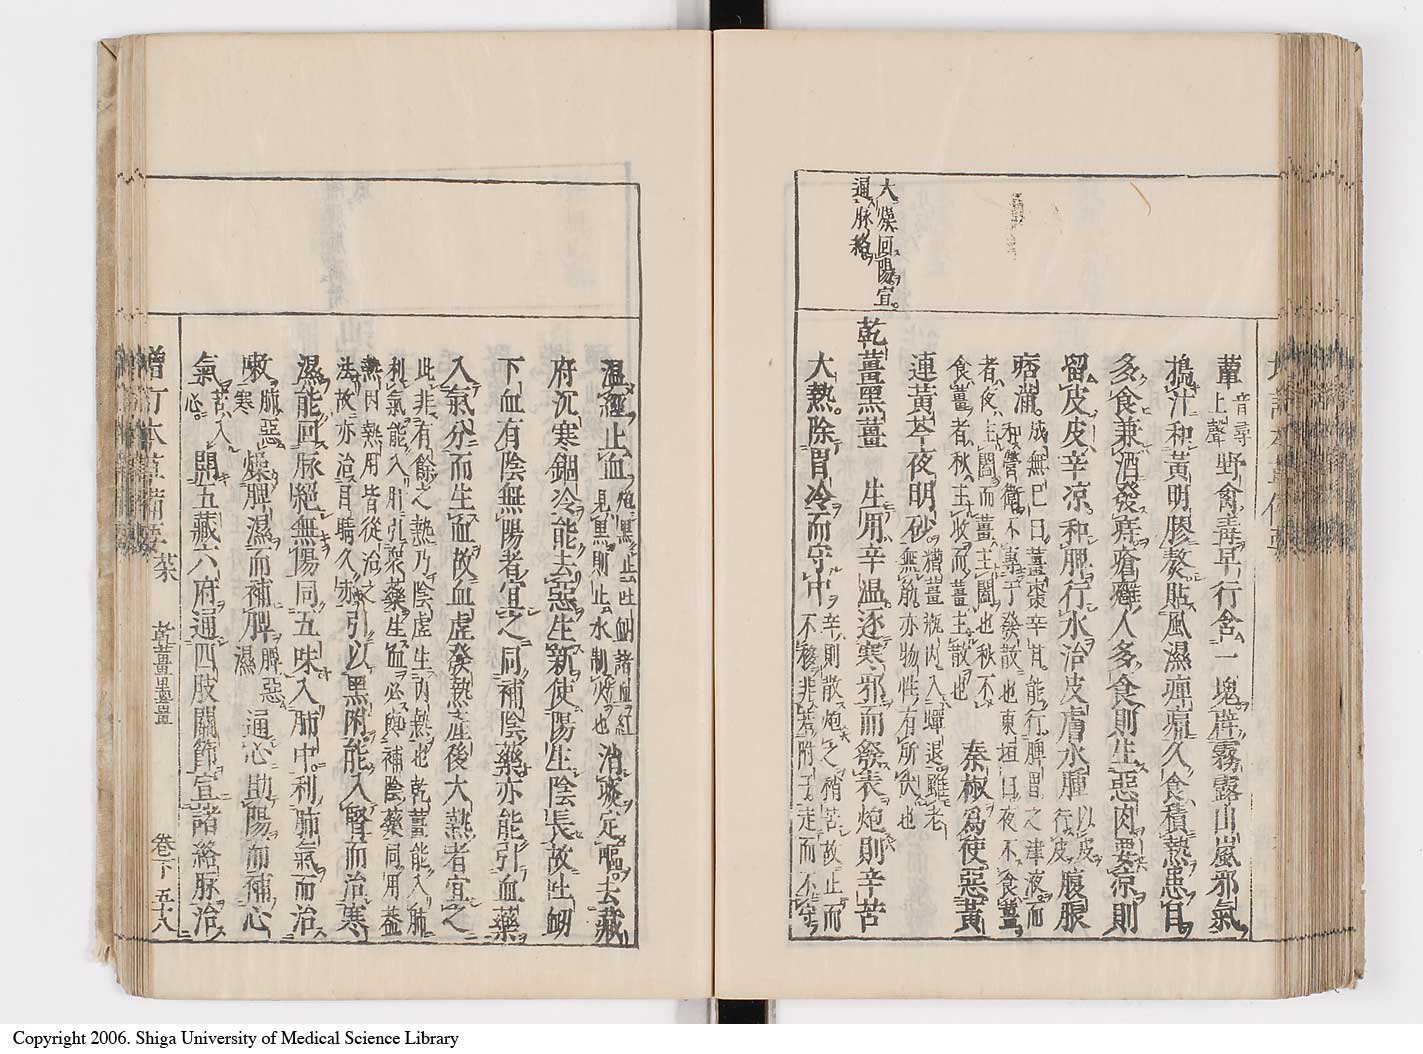 大燥回陽宜
通脉絡
蕈音尋上聲野禽毒早行含一塊辟霧露山嵐邪氣
搗汁和黃明膠熬貼風濕痺痛久食積熱患目
多食兼酒發痔瘡癰人多食則生惡肉要涼則
留皮皮辛涼和脾行水治皮膚水腫以皮行皮腹脹
痞滿成無已曰薑棗辛甘能行脾胃之津液而和營衛不專于發散也東垣曰夜不食薑
者夜主闔而薑主闢也秋不食薑者秋主收而薑主散也秦椒爲使惡黃
連黃芩夜明砂糟薑瓶內入蟬退雖老無筋亦物性有所伏也
乾薑黑薑 生用辛溫逐寒邪而發表炮則辛苦
大熱除胃冷而守中辛則散炮之稍苦故止而不移非若附子走而不守
溫經止血炮黑止吐衄諸血紅見黑則止水制火也消痰定嘔去藏
府沉寒錮冷能去惡生新使陽生陰長故吐衄
下血有陰無陽者宜之同補陰藥亦能引血藥
入氣分而生血故血虛發熱產後大熱者宜之
此非有餘之熱乃陰虛生內熱也乾薑能入肺
利氣能入肝引衆藥生血必與補陰藥同用葢
熱因熱用皆從治之法故亦治目睛久赤引以黑附能入腎而治寒
濕能回脉絕無陽同五味入肺中利肺氣而治
嗽肺惡寒燥脾濕而補脾脾惡濕通心助陽而補心
氣苦入心開五藏六府通四肢關節宣諸絡脉治
增訂本草備要 菜 乾薑黑薑 卷下 五十八
Copyright 2006. Shiga University of Medical Science Library